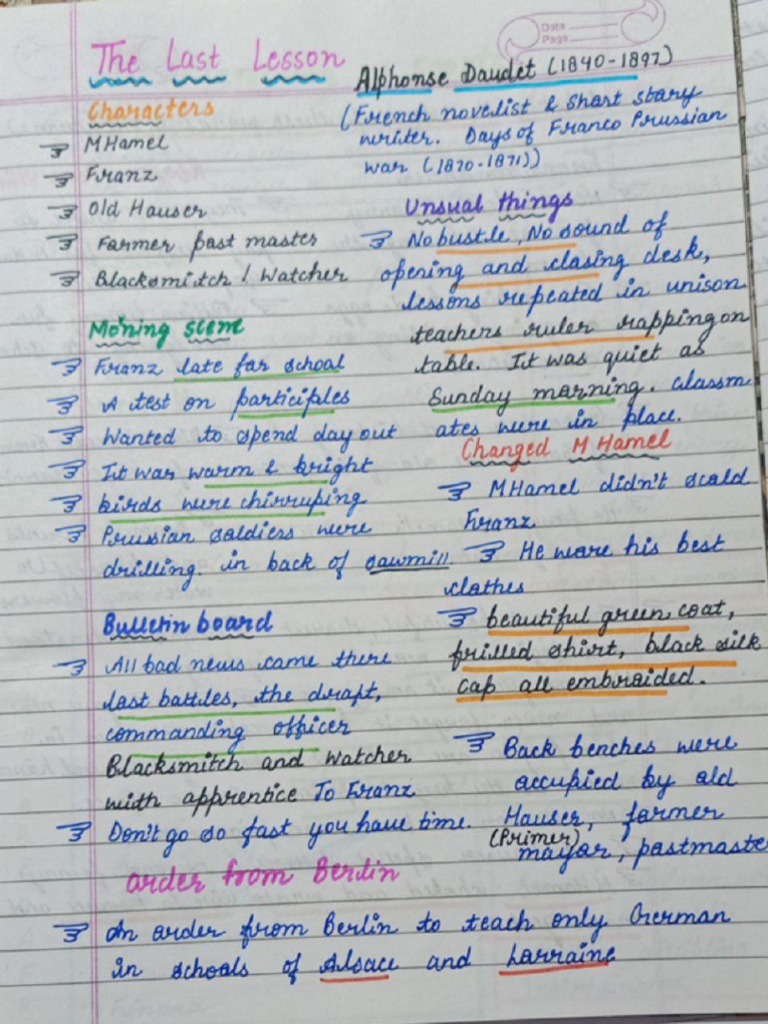 Date
Page
The Last Lesson
Alphonse Daudet (1840-1897)
(French novelist & short story
writer. Days of Franco Prussian
war (1870-1871))
Characters
M Hamel
Franz
Old Hauser
Farmer past master
Blacksmitch / Watcher
Moning scene
Franz late for school
A test on participles
Wanted to spend day out
It was warm & bright
birds were chirruping
Prussian soldiers were
drilling in back of sawmill
Bulletin board
All bad news came there
last battles, the draft,
commanding officer
Blacksmitch and watcher
with apprentice To Franz
Don't go so fast you have time.
Unsual things
No bustle, No sound of
opening and closing desk,
lessons repeated in unison
teachers ruler rapping on
table. It was quiet as
Sunday morning. Classm
ates were in place.
Changed M Hamel
M Hamel didn't scold
Franz
He wore his best
clothes
beautiful green coat,
frilled shirt, black silk
cap all embraided.
Back benches were
occupied by old
Hauser, farmer
(Primer)
mayor, postmaste
order from Berlin
An order from Berlin to teach only German
in schools of Alsace and Lorraine